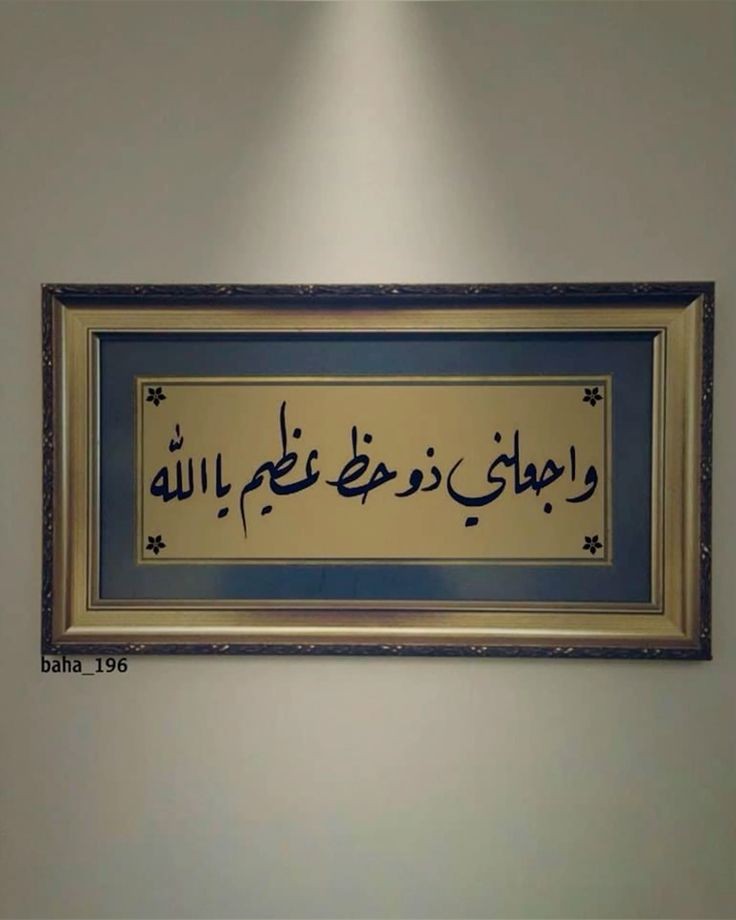 واجعلني ذو حظ عظيم يا الله
baha_196